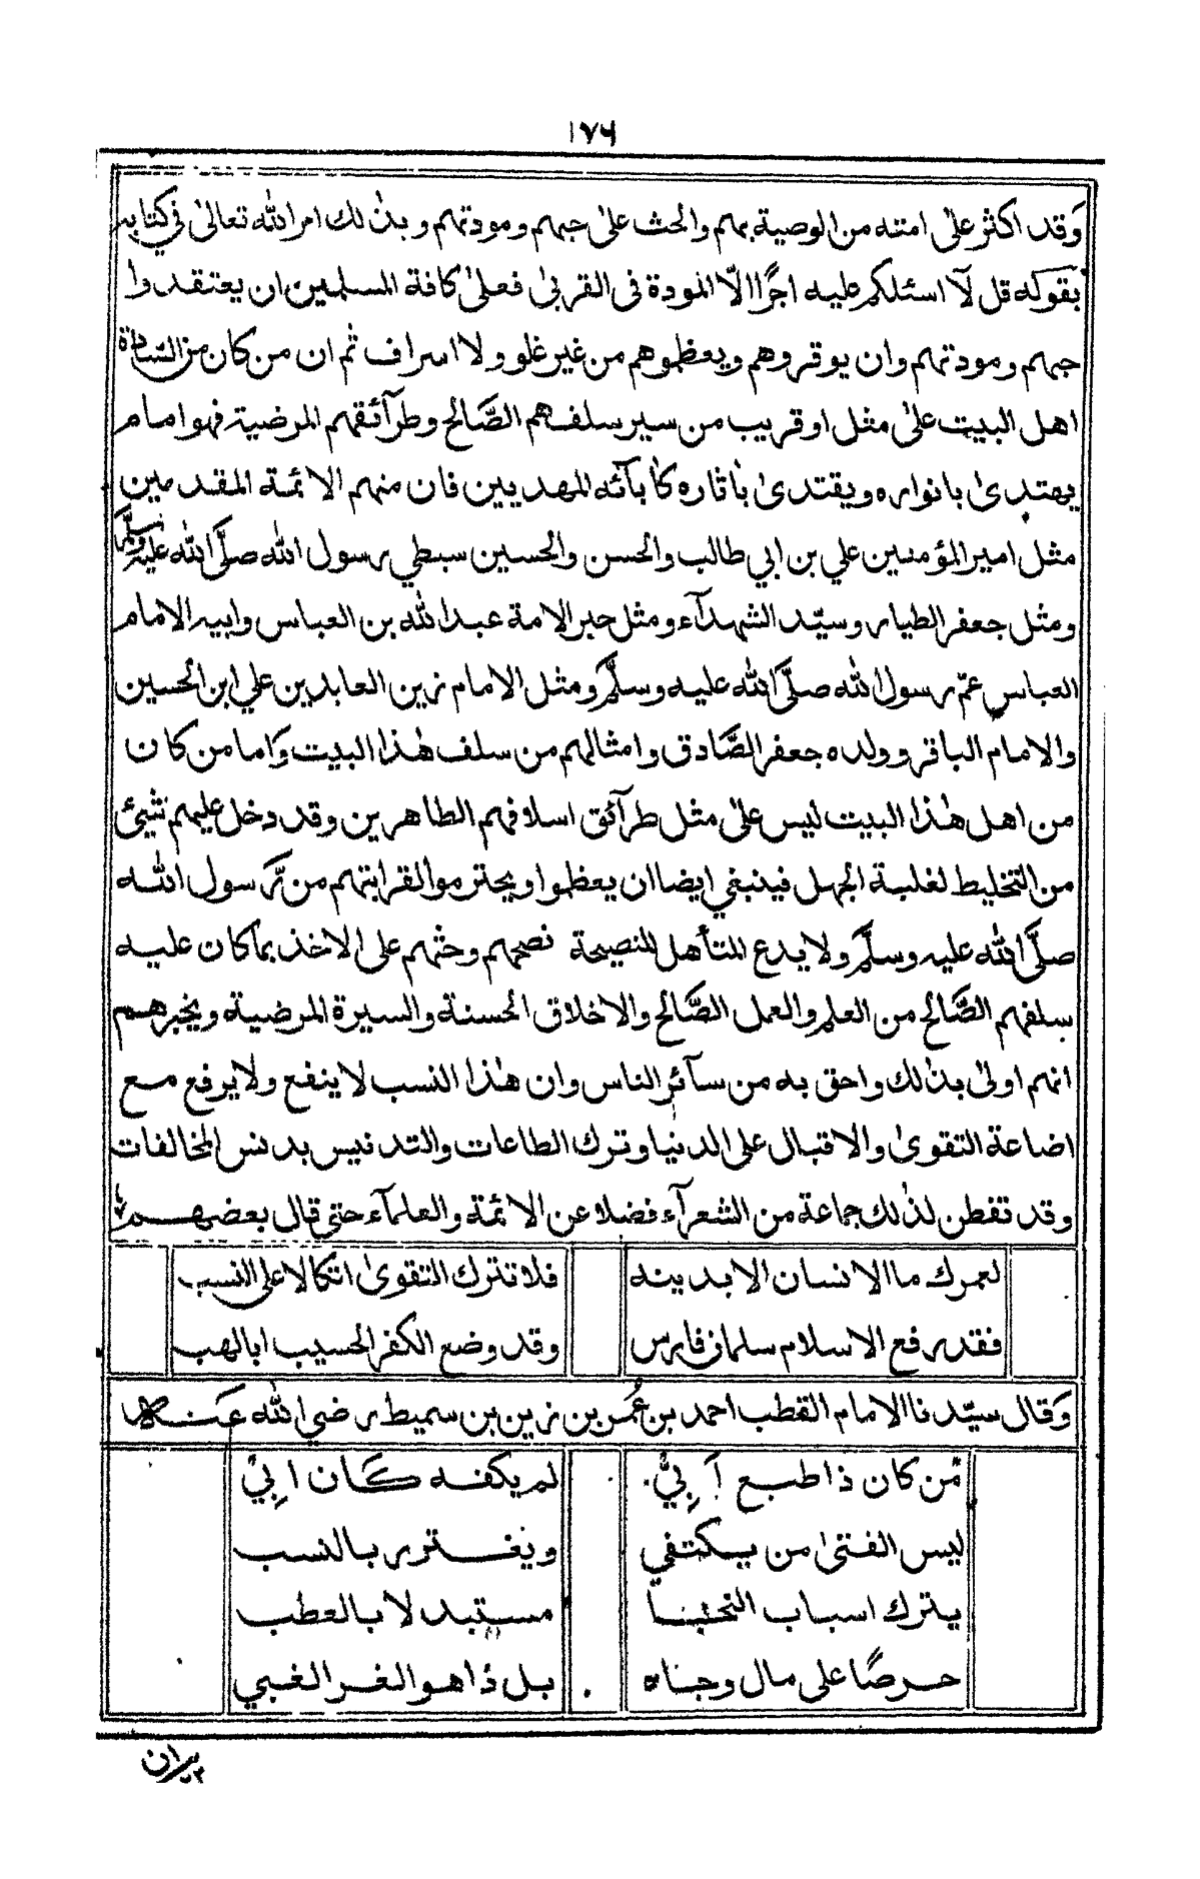 ١٧٦
وَقد اكثر علىٰ امته من الوصية بهم والحث علىٰ حبهم ومودتهم وبذٰلك امر الله تعالىٰ في كتابه
بقوله قل لآ اسئلكم عليه اجرًا الّا المودة فى القربىٰ فعلىٰ كافة المسلمين ان يعتقدوا
حبهم ومودتهم وان يوقروهم ويعظموهم من غير غلو ولا اسراف ثم ان من كان من السادة
اهل البيت علىٰ مثل او قريب من سير سلفهم الصَّالح وطرآئقهم المرضية فهو امام
يهتدىٰ بانواره ويقتدىٰ باٰثاره كاٰبآئه المهديين فان منهم الائمة المقدمين
مثل امير المؤمنين علي بن ابي طالب والحسن والحسين سبطي رسول الله صلَّى الله عليه وسلَّم
ومثل جعفر الطيار وسيّد الشهدآء ومثل حبر الامة عبد الله بن العباس وابيه الامام
العباس عمّ رسول الله صلَّى الله عليه وسلَّم ومثل الامام زين العابدين علي ابن الحسين
والامام الباقر وولده جعفر الصَّادق وامثالهم من سلف هٰذا البيت وَاما من كان
من اهل هٰذا البيت ليس علىٰ مثل طرآئق اسلافهم الطاهرين وقد دخل عليهم شيئ
من التخليط لغلبة الجهل فينبغي ايضا ان يعظموا ويحترموا لقرابتهم من رسول الله
صلَّى الله عليه وسلَّم ولا يدع المتأهل للنصيحة نصحهم وحثهم على الاخذ بما كان عليه
سلفهم الصَّالح من العلم والعمل الصَّالح والاخلاق الحسنة والسيرة المرضية ويخبرهم
انهم اولىٰ بذٰلك واحق به من سآئر الناس وان هٰذا النسب لا ينفع ولا يرفع مع
اضاعة التقوىٰ والاقبال على الدنيا وترك الطاعات والتدنيس بدنس المخالفات
وقد تفطن لذٰلك جماعة من الشعرآء فضلا عن الائمة والعلمآء حتى قال بعضهم
لعمرك ما الانسان الا بدينه فلا تترك التقوىٰ اتكالا على النسب
فقد رفع الاسلام سلمان فارس وقد وضع الكفر الحسيب ابا لهب
وَقال سيّدنا الامام القطب احمد بن عُمر بن زين بن سميط رضي الله عنه
من كان ذا طبع اَبِيّ لم يكفه كان ابِيْ
ليس الفتىٰ من يكتفي ويغترر بالنسب
يترك اسباب النجا مستبدلا بالعطب
حرصًا على مال وجاه بل ذا هو الغر الغبي